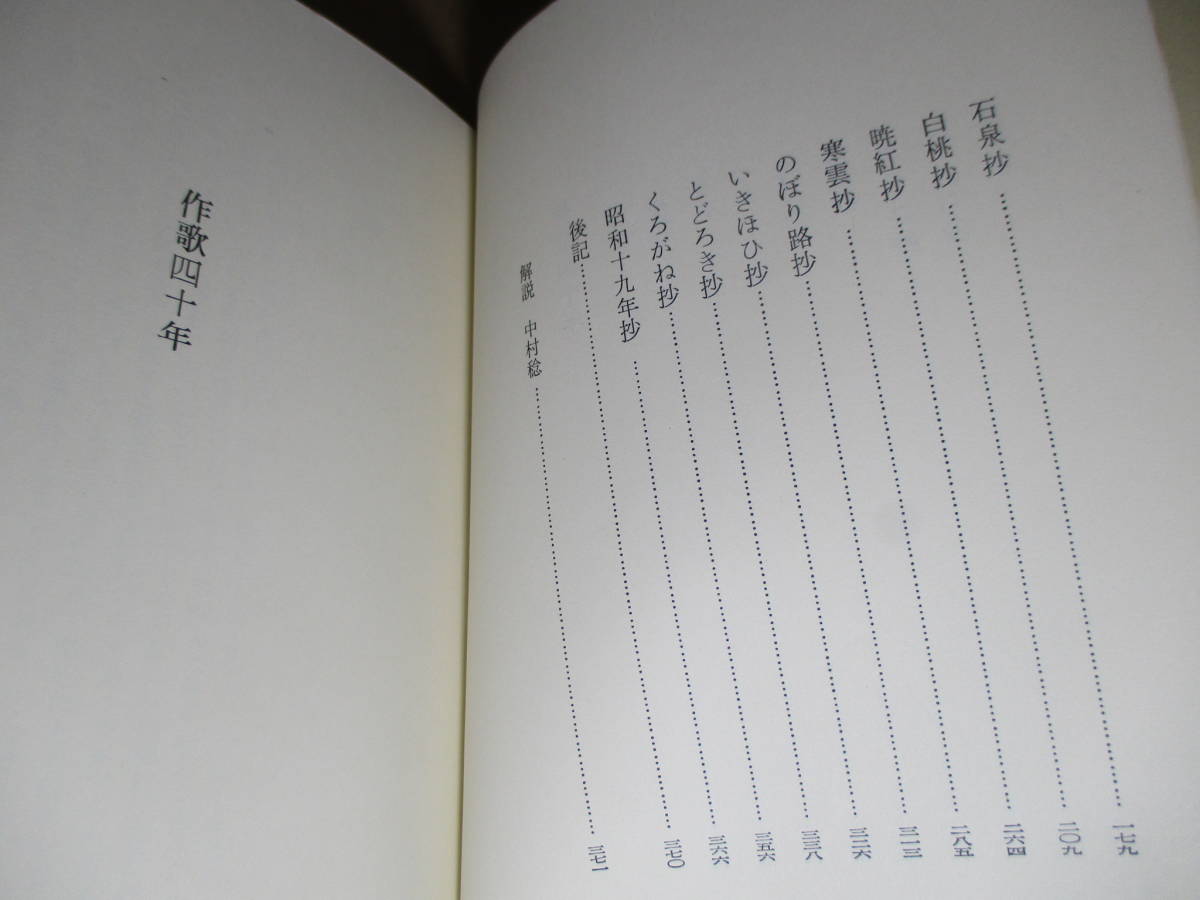 石泉抄……一七九
白桃抄……二〇九
暁紅抄……二六四
寒雲抄……二八五
のぼり路抄……三一三
いきほひ抄……三二六
とどろき抄……三三八
くろがね抄……三五六
昭和十九年抄……三六六
後記……三七〇
解説 中村稔……三七一
作歌四十年